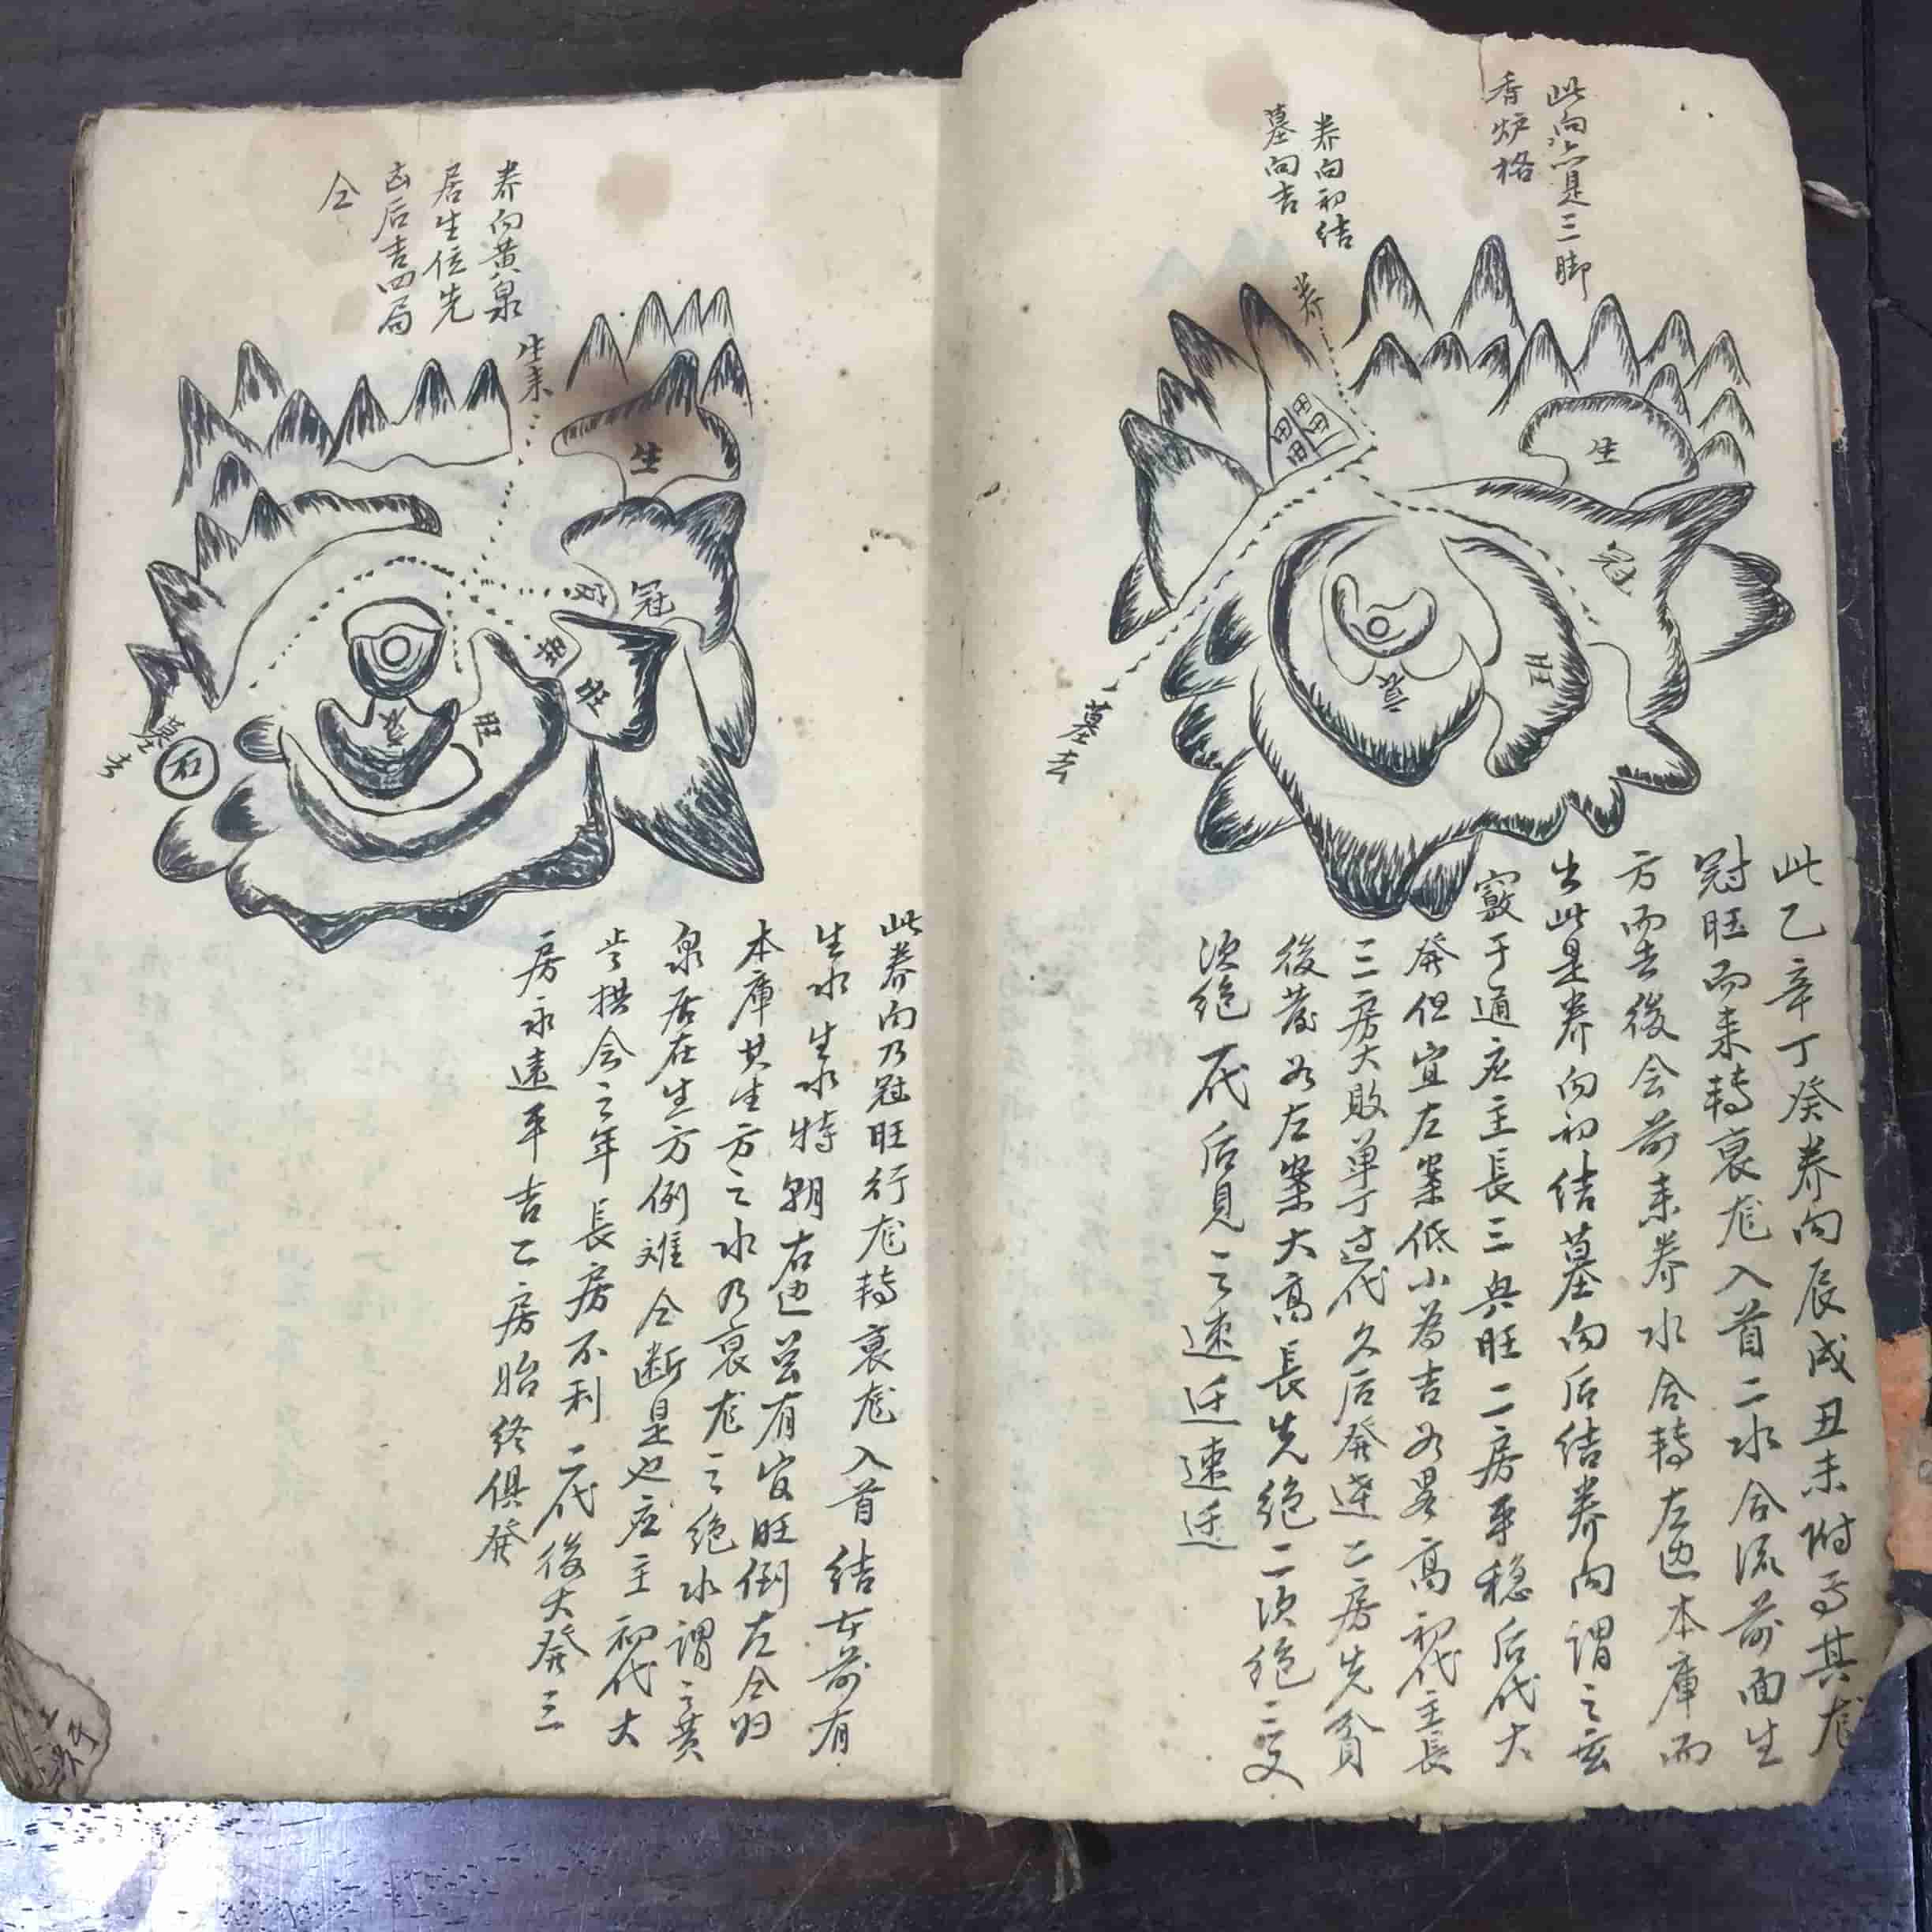 此向亦是三脚
香炉格
养向初结
墓向吉
养
生
冠
旺
衰
墓去
此乙辛丁癸养向辰戌丑未附焉其龙
冠旺而来转衰龙入首二水合流前面生
方而去後会前来养水合转左边本庫而
出此是养向初结墓向后结养向谓之玄
竅于通应主長三興旺二房平稳后代大
発但宜左案低小為吉若畧高初代主長
三房大敗单丁过代久后発達二房先貧
後發若左案大高長先绝二次绝三又
次绝一代后見之速迁速迁
养向黄泉
居生位先
凶后吉四局
仝
生来
生
官
冠
旺
旺
衰
墓去
石
此养向乃冠旺行龙转衰龙入首结右前有
生水生水特朝右边曾有官旺倒左合归
本庫其生方之水乃衰龙之绝水谓之黄
泉居在生方例难仝断是也应主初代大
拱会之年長房不利二代後大発三
房永遠平吉二房始终俱発